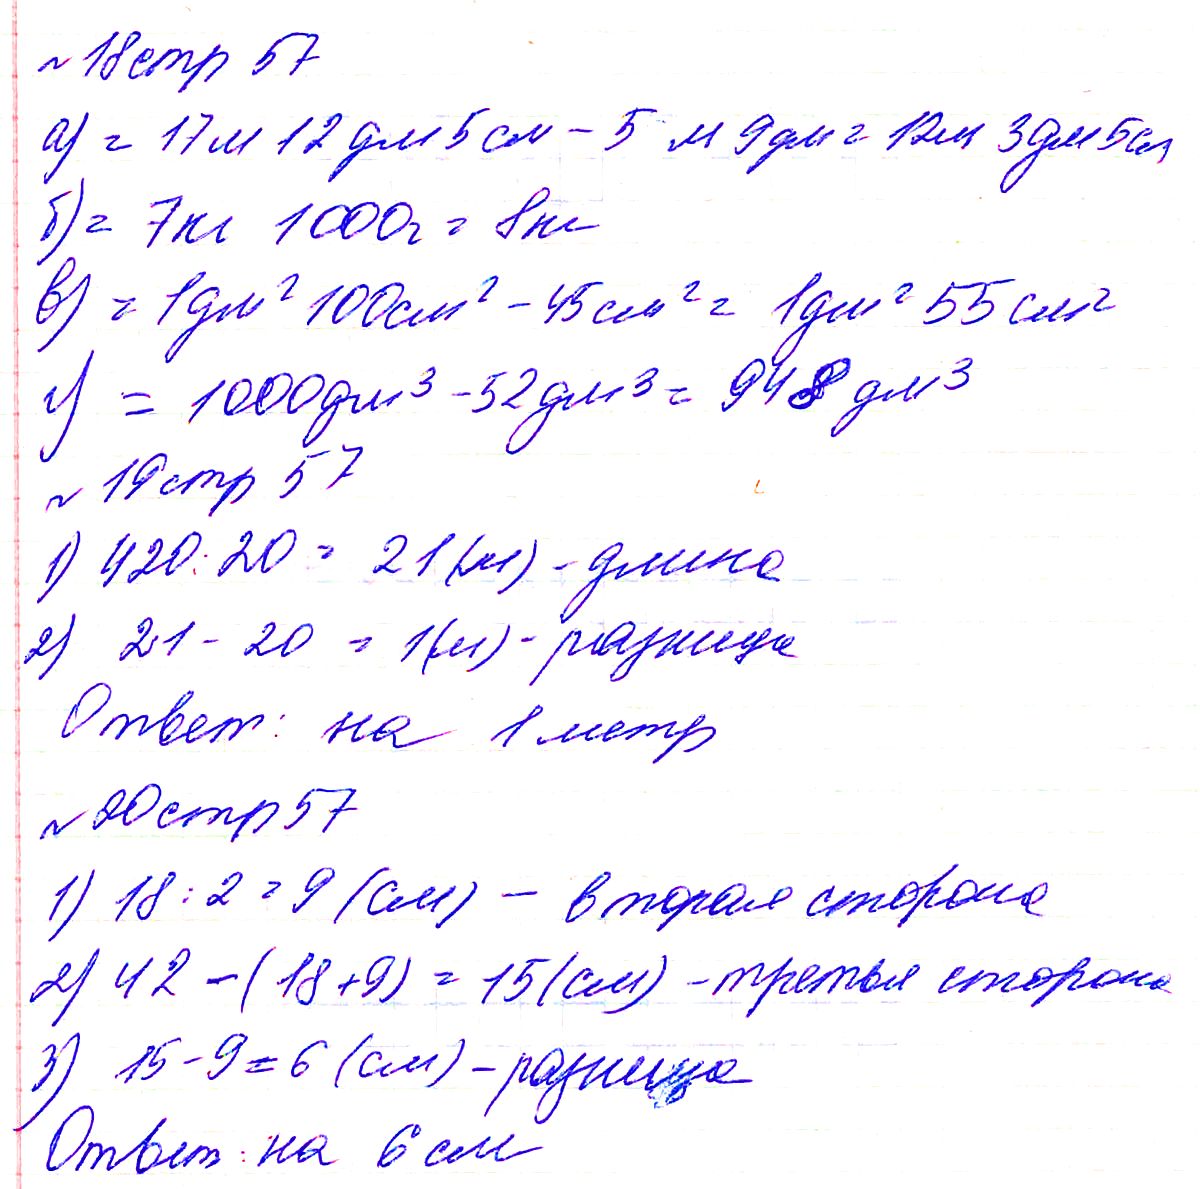 ~ 18 стр 57
а) = 17м 12дм 5см - 5 м 9дм = 12м 3дм 5см
б) = 7кг 1000г = 8кг
в) = 1дм² 100см² - 45см² = 1дм² 55см²
г) = 1000дм³ - 52дм³ = 948 дм³
~ 19 стр 57
1) 420 : 20 = 21(м) - длина
2) 21 - 20 = 1(м) - разница
Ответ: на 1 метр
~ 20 стр 57
1) 18 : 2 = 9 (см) - вторая сторона
2) 42 - (18+9) = 15(см) - третья сторона
3) 15 - 9 = 6 (см) - разница
Ответ: на 6 см